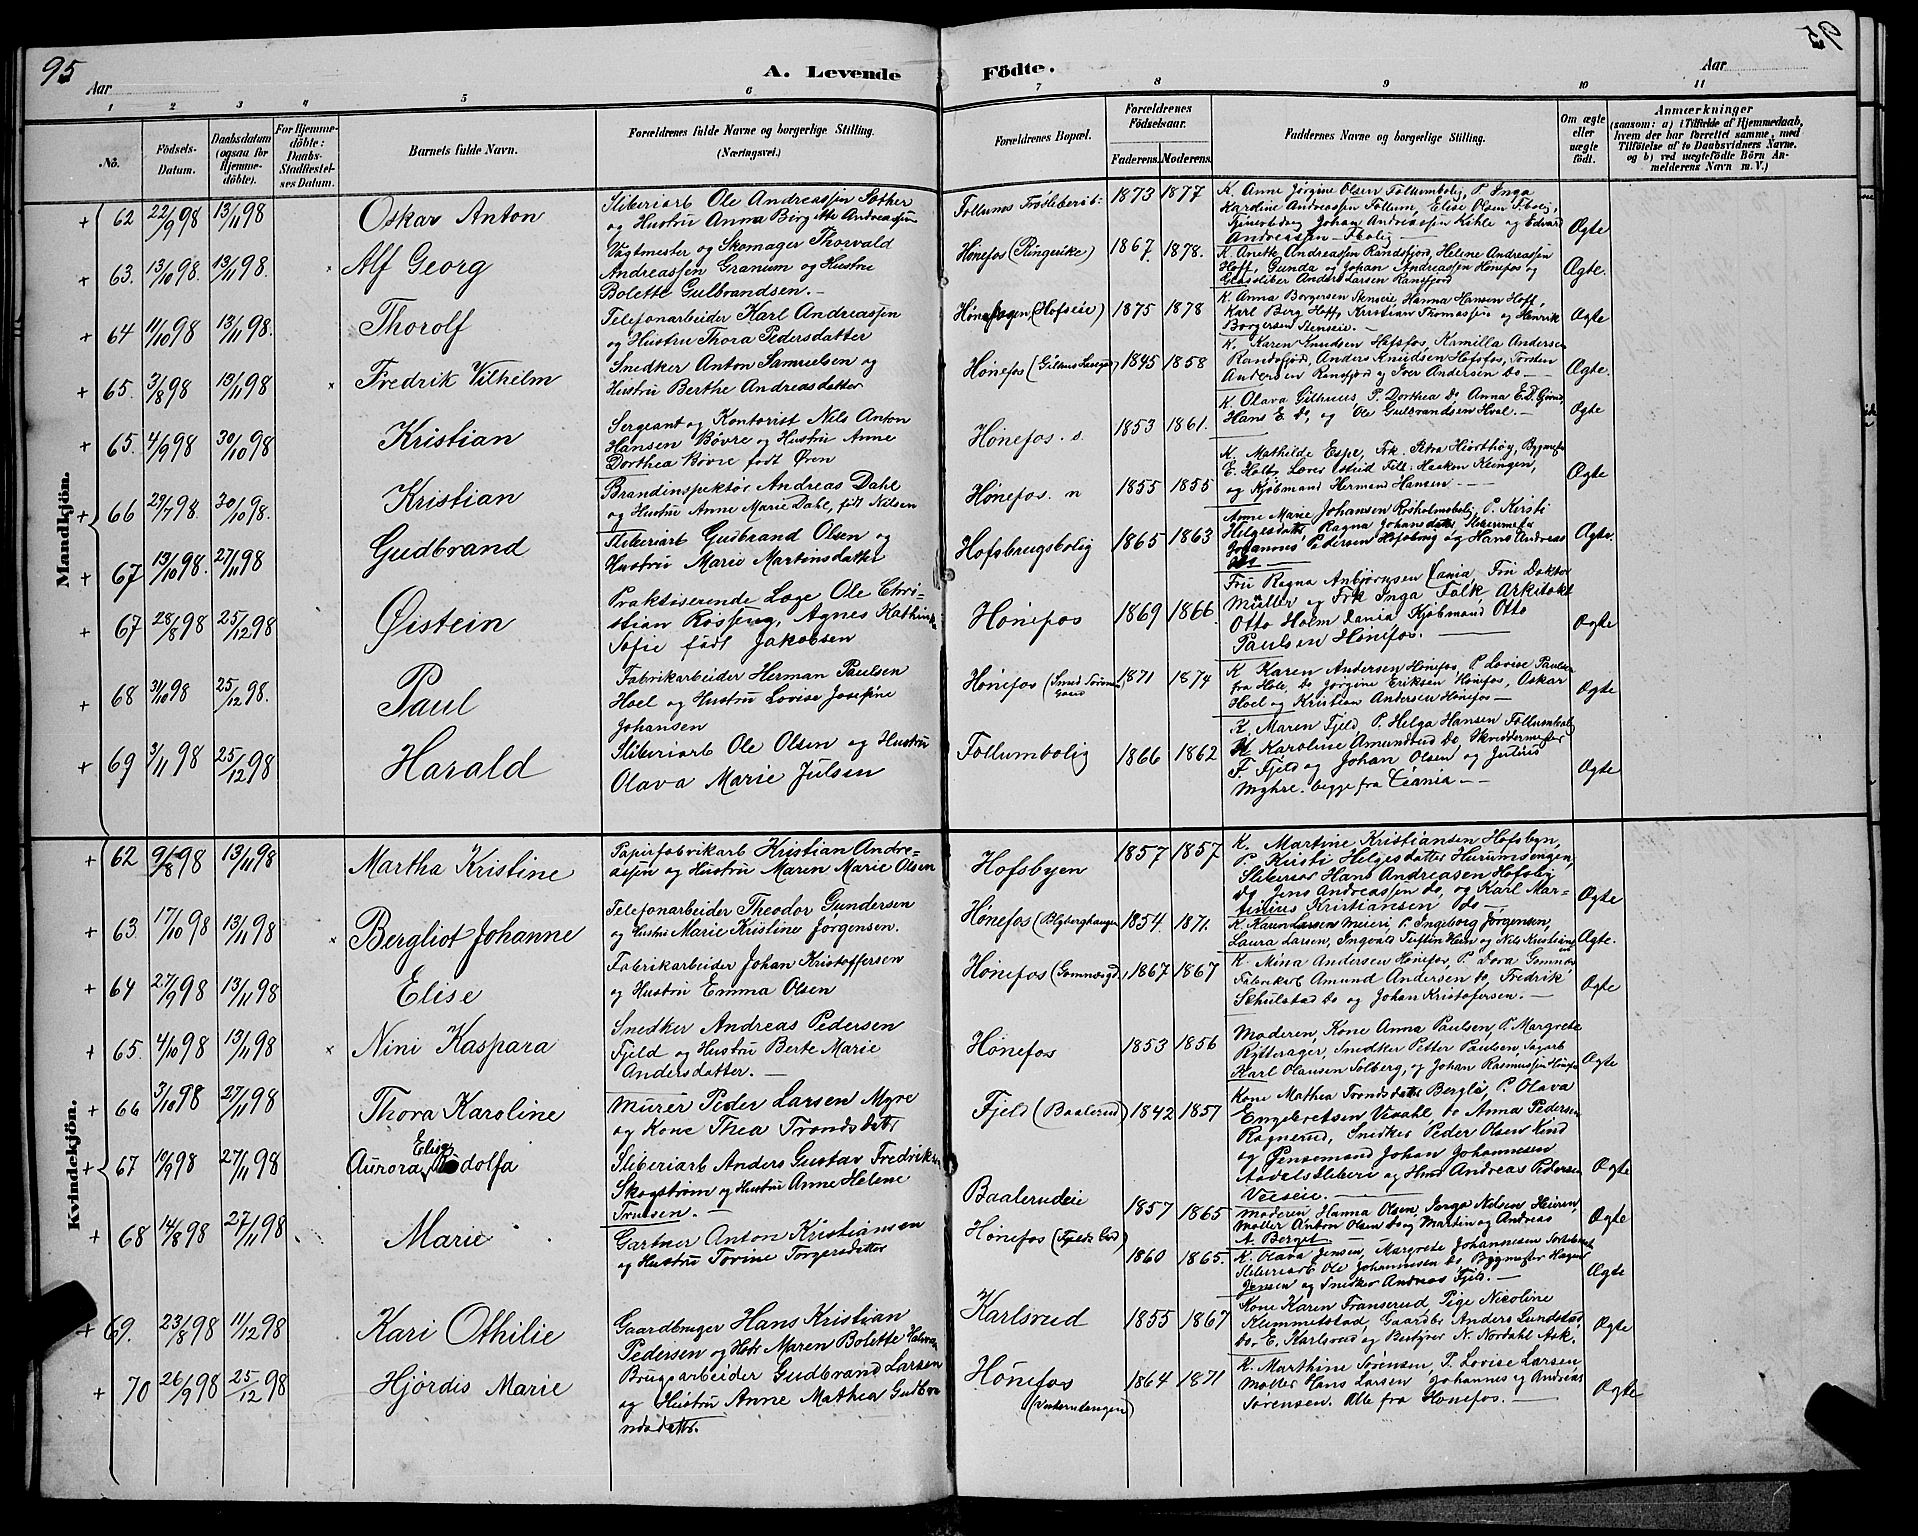 95
95
A. Levende Födte.
Aar
Aar
1 2 3 4 5 6 7 8 9 10 11
No.
Födsels-Datum.
Daabsdatum (ogsaa for Hjemme-döbte).
For Hjemme-döbte: Daabs-Stadfæstel-ses Datum.
Barnets fulde Navn.
Forældrenes fulde Navne og borgerlige Stilling.
(Næringsvei.)
Forældrenes Bopæl.
Forældrenes Födselsaar.
Faderens. Moderens.
Faddernes Navne og borgerlige Stilling.
Om ægte eller uægte födt.
Anmærkninger
(saasom: a) i Tilfælde af Hjemmedaab, hvem der har forrettet samme, med Tilföielse af to Daabsvidners Navne, og b) ved uægtefödte Börn Anmelderens Navn m. V.)
Mandkjön.
+ 62 22/9 98 13/11 98 Oskar Anton
Sliberiarb Ole Andreassen Sother
og Hustru Anna Birgitte Andreassen
1873 1877
K Anne Jørgine Olsen Follumbolig, P. Inga
Kardine Andreassen Follum, Elise Olsen Fbolig,
Johan Andreassen Kihle og Edvard
Andreassen Fbolig
Ægte
+ 63. 13/10 98. 13/11 98. × Alf Georg
Vagtmester og Skomager Thorvald
Andreassen Granum og Hustru
Bolette Gulbrandsen.
Hönefos (Ringerike) 1867. 1878.
K. Anette Andreassen Randsfjord, Helene Andreassen
Hoff, Gunda og Johan Andreassen Hönefos og
Glassliber Anders Larsen Ransfjord
Ægte.
+ 64 11/10 98 13/11 98. Thorolf
Telefonarbeider Karl Andreassen
og Hustru Thora Pedersdatter
(Hofseie) 1875 1878
K. Anna Borgersen Stenseie, Hanna Hansen Hoff,
Karl Berg Hoff, Kristian Thomassen og Henrik
Borgersen Stenseie.
Ægte
+ 65. 3/8 98 13/11 98 × Fredrik Vilhelm
Snedker Anton Samuelsen og
Hustru Berthe Andreasdatter
Hönefos 1845 1858
K. Karen Knudsen Hofsfos, Kamilla Andersen
Randsfjord, Anders Knudsen Hofsfos, Torsten
Andersen Ransfjord og Iver Andersen do
Ægte.
+ 65. 4/9 98 30/10 98 Kristian
Sergeant og Kontorist Nils Anton
Hansen Bövre og Hustru Anne
Dorthea Bövre födt Øren
Hönefos. s. 1853 1861.
K. Olava Gilhuus P. Dorthea do Anna E.D.
Hans E. do, og Ole Gulbrandsen Hval.
Ægte
+ 66 29/7 98. 30/10 98. Kristian
Brandinspektör Andreas Dahl
og Hustru Anne Marie Dahl, födt Nilsen
Hönefos. n 1855 1855
K. Mathilde Espe, Frk. Petra Hiorthöy, Bygmester
E. Holt, Lærer Haaken Kiingen,
og Kjöbmand Herman Hansen.
Ægte
+ 67 13/10 98. 27/11 98 Gudbrand
Sliberiarb Gudbrand Olsen og
Hustru Marie Martinsdatter
Hofsbrugsbolig 1865 1863
Anne Marie Johansen P. Kirsti
Helgesdatt, Ragna Johansdatt,
Johannes Pedersen Hofsbrug og Hans Andreas
Ægte.
+ 67 28/8 98 25/12 98 Øistein
Praktiserende Læge Ole Chri-
stian Rosting, Agnes Kathinka
Sofie födt Jakobsen
Hönefos 1869 1866.
Fru Ragna Anbjörnsen Xania, Fru Doktor
Müller og Frk Inga Falk Arkitekt
Otto Holm Xania, Kjöbmand Otto
Paulsen Hönefos.
Ægte
+ 68 31/10 98 25/12 98. Paul
Fabrikarbeider Herman Paulsen
Hoel og Hustru Lovise Josefine
Johansen
Hönefos 1871 1874
K Karen Andersen Hönefos, P Lovise Paulsen
fra Hole, do Jörgine Eriksen Hönefos, Oskar
Hoel og Kristian Andersen Hönefos
Ægte
+ 69 3/11 98 25/12 98 Harald
Sliberiarb Ole Olsen og Hustru
Olava Marie Julsen
Follumbolig 1866 1862
K. Maren Fjeld P. Helga Hansen Follumbolig
K Karoline Amundrud do Skreddermester
F. Fjeld og Johan Olsen og Julius
Myhre. begge fra Xania
Ægte
Kvindekjön.
+ 62 9/8 98 13/11 98 Martha Kristine
Papirfabrikarb Kristian Andre-
assen og Hustru Maren Marie Olsen
Hofsbyen 1857 1857
K. Martine Kristiansen Hofsbyn,
P. Kirsti Helgesdatter Hurumsengen,
Sliberiar Hans Andreasen Hofsby
do Jens Andreassen do, og Karl Mar-
tinius Kristiansen do
Ægte
+ 63. 17/10 98 13/11 98 × Bergliot Johanne
Telefonarbeider Theodor Gundersen
og Hustru Marie Kristine Jørgensen.
Hönefos (Blyberghaugen 1854. 1871.
K. Karen Larsen Meieri, P. Ingeborg Jørgensen,
Laura Larsen, Ingvald og Nils Kristiansen
Ægte.
+ 64 27/9 98 13/11 98 Elise
Fabrikarbeider Johan Kristoffersen
og Hustru Emma Olsen
Hönefos 1867 1867
K. Mina Andersen Hönefos, P. Dora
Fabrikarb Amund Andersen do, Fredrik
Schulstad do og Johan Kristofersen.
Ægte
+ 65. 4/10 98 13/11 98 × Nini Kaspara
Snedker Andreas Pedersen
Fjeld og Hustru Berte Marie
Andersdatter.
Hönefos 1853 1856
Moderen, Kone Anna Paulsen, P. Margrethe
Rytterager, Snedker Petter Paulsen, Sagarb
Karl Olausen Solberg, og Johan Rasmussen Hönefos
Ægte
+ 66 3/10 98 27/11 98 Thora Karoline
Murer Peder Larsen Myre
og Kone Thea Trondsdatt
Fjeld (Baalerud) 1842 1857
Kone Mathea Trondsdatt Berglö, P. Olava
Engebretsen Vesahl, do Anna Pedersen
Ragnerud, Snedker Peder Olsen Lund
og Johan Johannesen
Aadals Sliberi og Hmd Andreas Pedersen
Veiseie.
Ægte
+ 67 10/9 98 27/11 98 Aurora Elise Rodolfa
Sliberiarb Anders Gustav Fredriksen
Skogström og Hustru Anne Helene
Truesen.
Baalerudeie 1857 1865
Moderen Hanna Olsen, Nilsen Heieren,
Möller Anton Olsen do og Martin og Andreas
A. Berget
Ægte
+ 68 14/8 98 27/11 98 Marie
Gartner Anton Kristiansen
og Hustru Tovine Torgersdatter
Hönefos 1860 1865.
K. Olava Jensen, Margrete Johannessen
Sliberiarb Ole Johannessen do Bygmester Hagen
Jensen og Snedker Andreas Fjeld.
Ægte
+ 69. 23/8 98 11/12 98 Kari Othilie
Gaardbruger Hans Kristian
Pedersen og Hstr Maren Bolette
Karlsrud 1855 1867
Kone Karen Franserud, Pige Nicoline
Klemmetstad, Gaardbr Anders Lundstad,
do E. Karlsrud og Bestyrer N. Nordahl Ask.
Ægte
+ 70 26/9 98 25/12 98 Hjördis Marie
Brugsarbeider Gudbrand Larsen
og Hustru Anne Mathea Gudbra
ndsdatter.
Hönefos 1864 1871
K. Marthine Sörensen, P. Lovise Larsen
Möller Hans Larsen Johannes og Andreas
Sörensen. Alle fra Hönefos.
Ægte